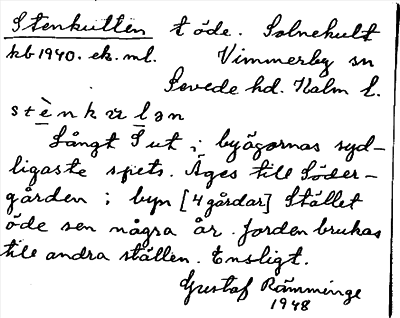 Stenkullen t öde. Solnehult
kb 1940. ek. ml. Vimmerby sn
Sevede hd. Kalm l.
stènkulən
Långt S ut i byägornas syd-
ligaste spets. Äges till Söder-
gården i byn [4 gårdar] Stället
öde sen några år. Jorden brukas
till andra ställen. Ensligt.
Gustaf Rämminge
1948